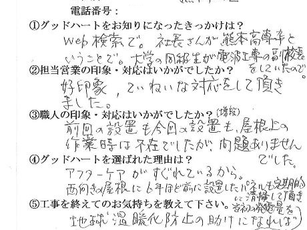 電話番号：
①グッドハートをお知りになったきっかけは？
Web検索で。社長さんが熊本高専卒と
いうことで。大学の同級生が電波工専の副校長
をしていたので
②担当営業の印象・対応はいかがでしたか？
好印象，ていねいな対応をして頂き
ました。
③職人の印象・対応はいかがでしたか？（増設）
前回の設置も今回の設置も，屋根上の
作業時は不在でしたが問題ありません
でした。
④グッドハートを選ばれた理由は？
アフターケアがすぐれているから。
西向きの屋根に6年ほど前に設置したパネルも定期的
に清掃して頂き
⑤工事を終えてのお気持ちを教えて下さい。
地球温暖化防止の助けになれば